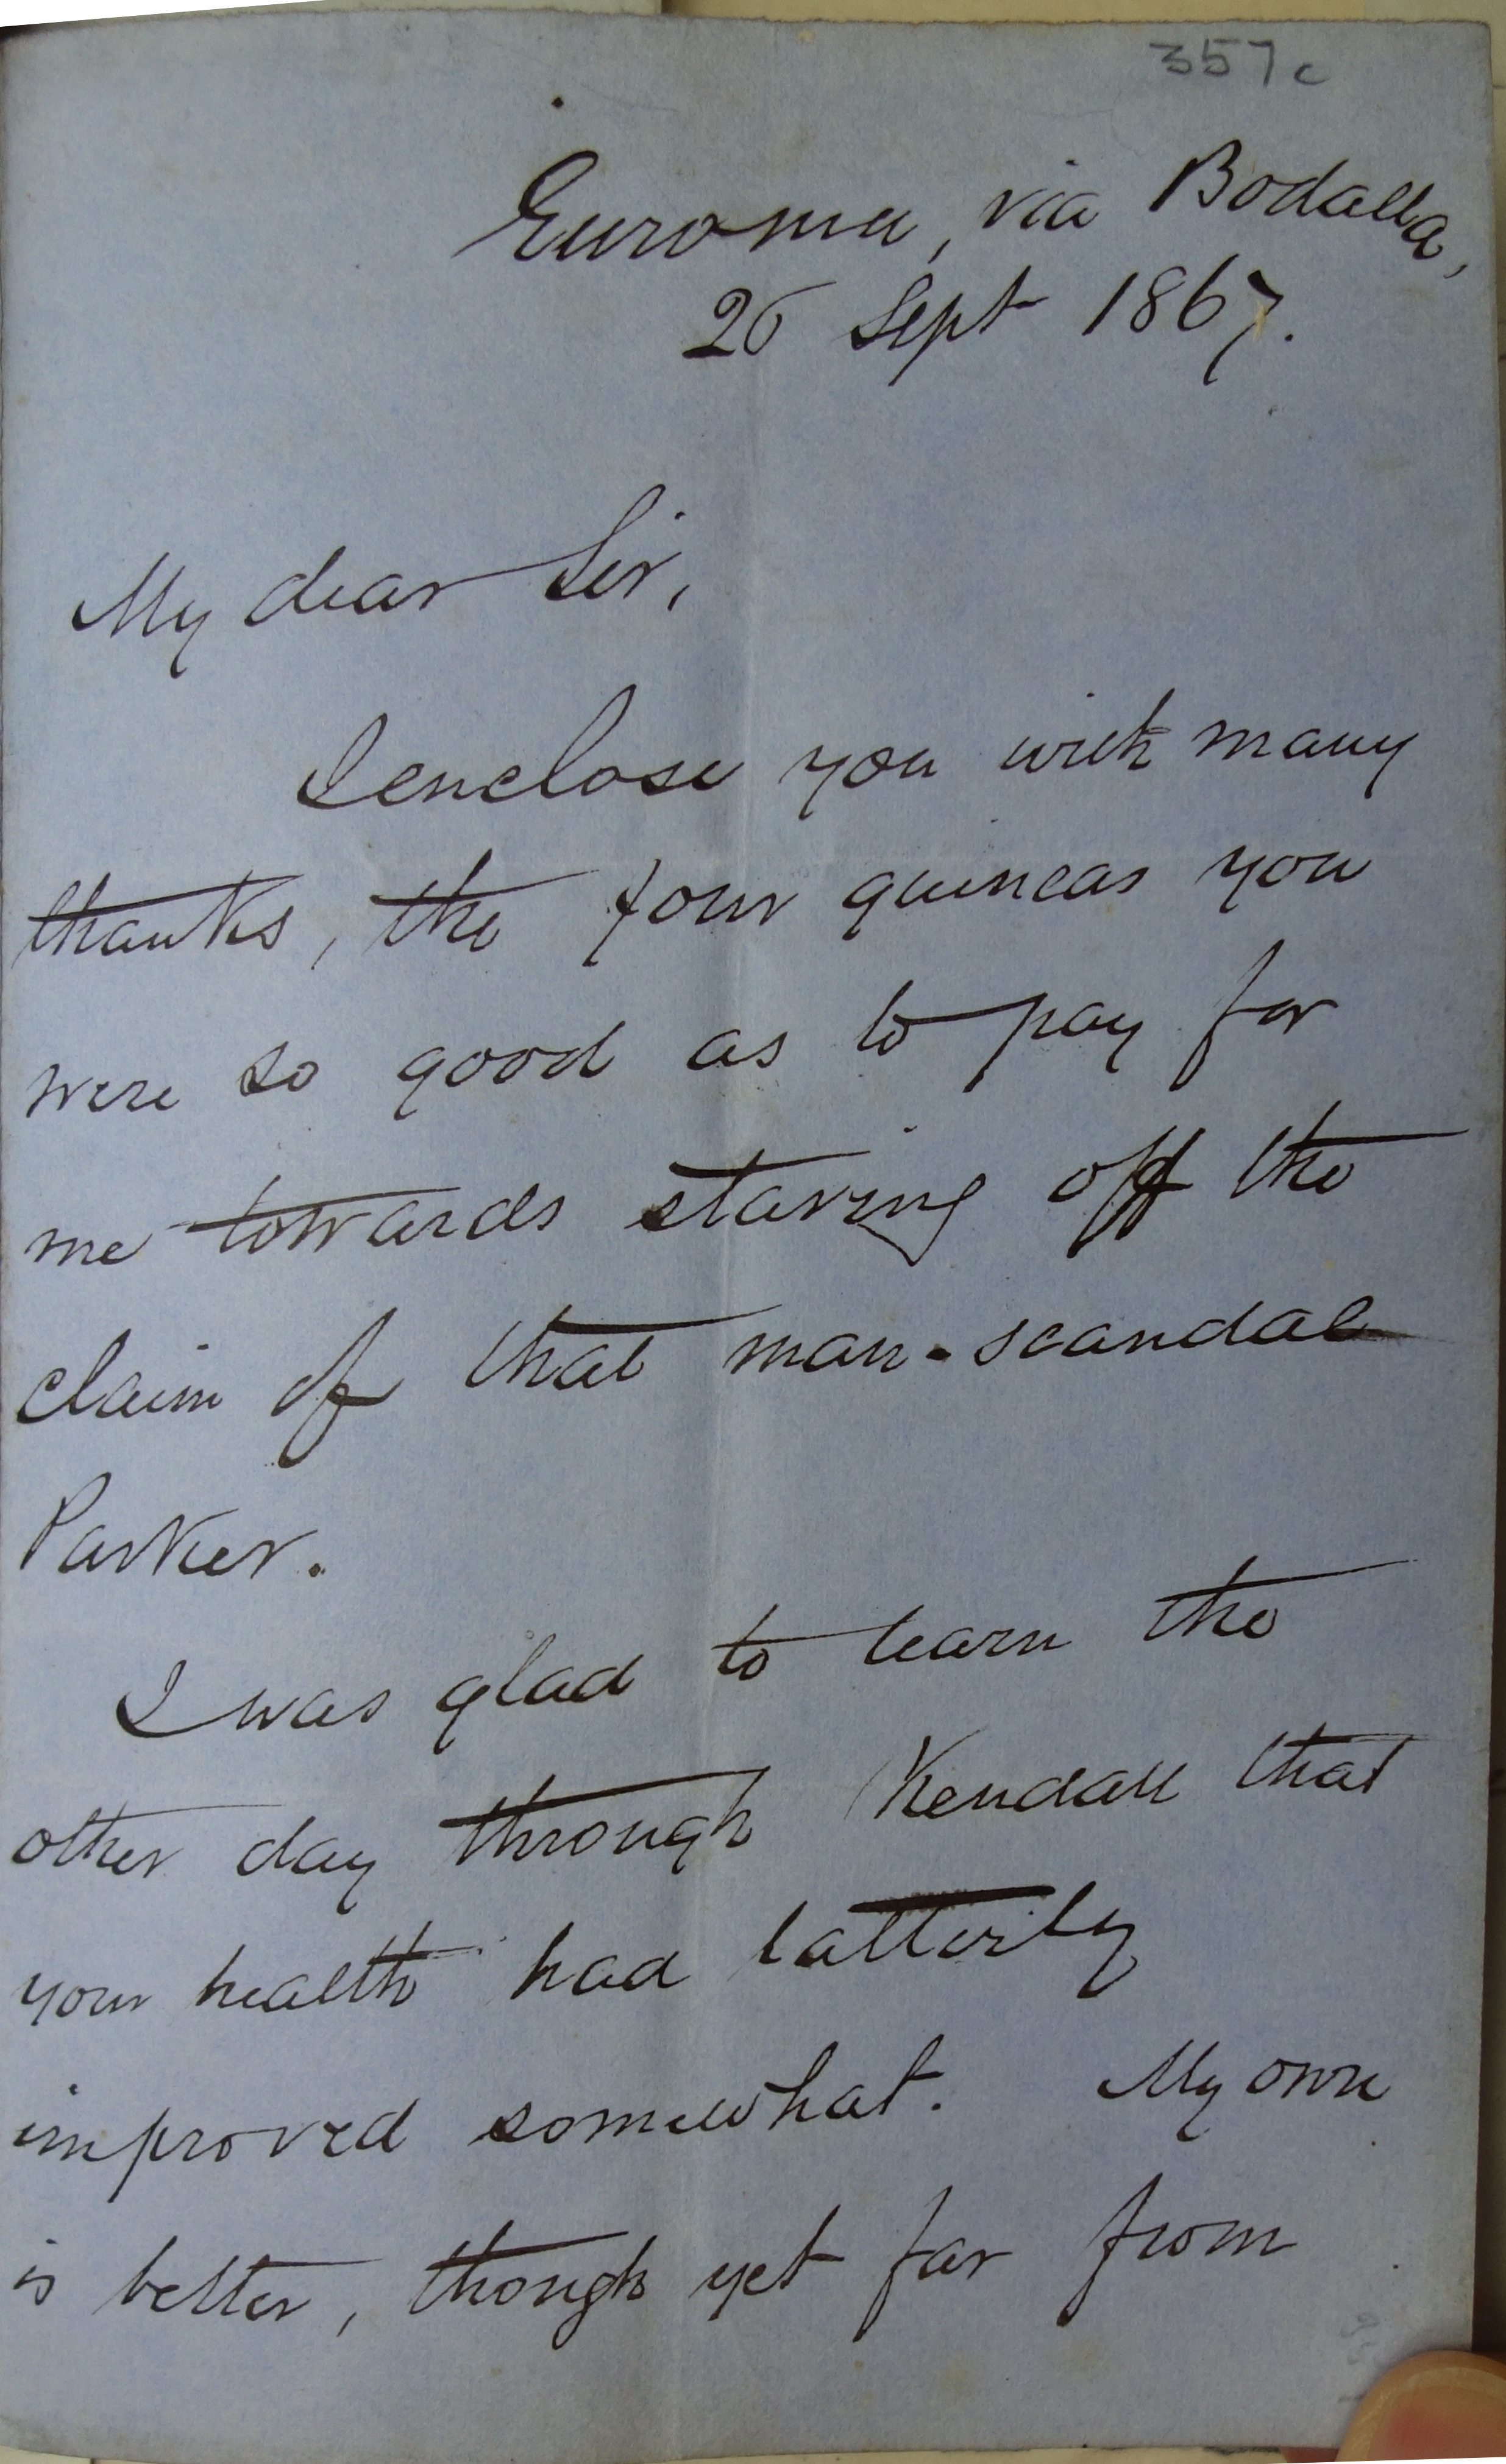 357c
Euroma, via Bodalla,
26 Sept 1867.
My dear Sir,
I enclose you with many
thanks, the four guineas you
were so good as to pay for
me towards staving off the
claim of that man-scandal
Parker.
I was glad to learn the
other day through Kendall that
your health had latterly
improved somewhat. My own
is better, though yet far from